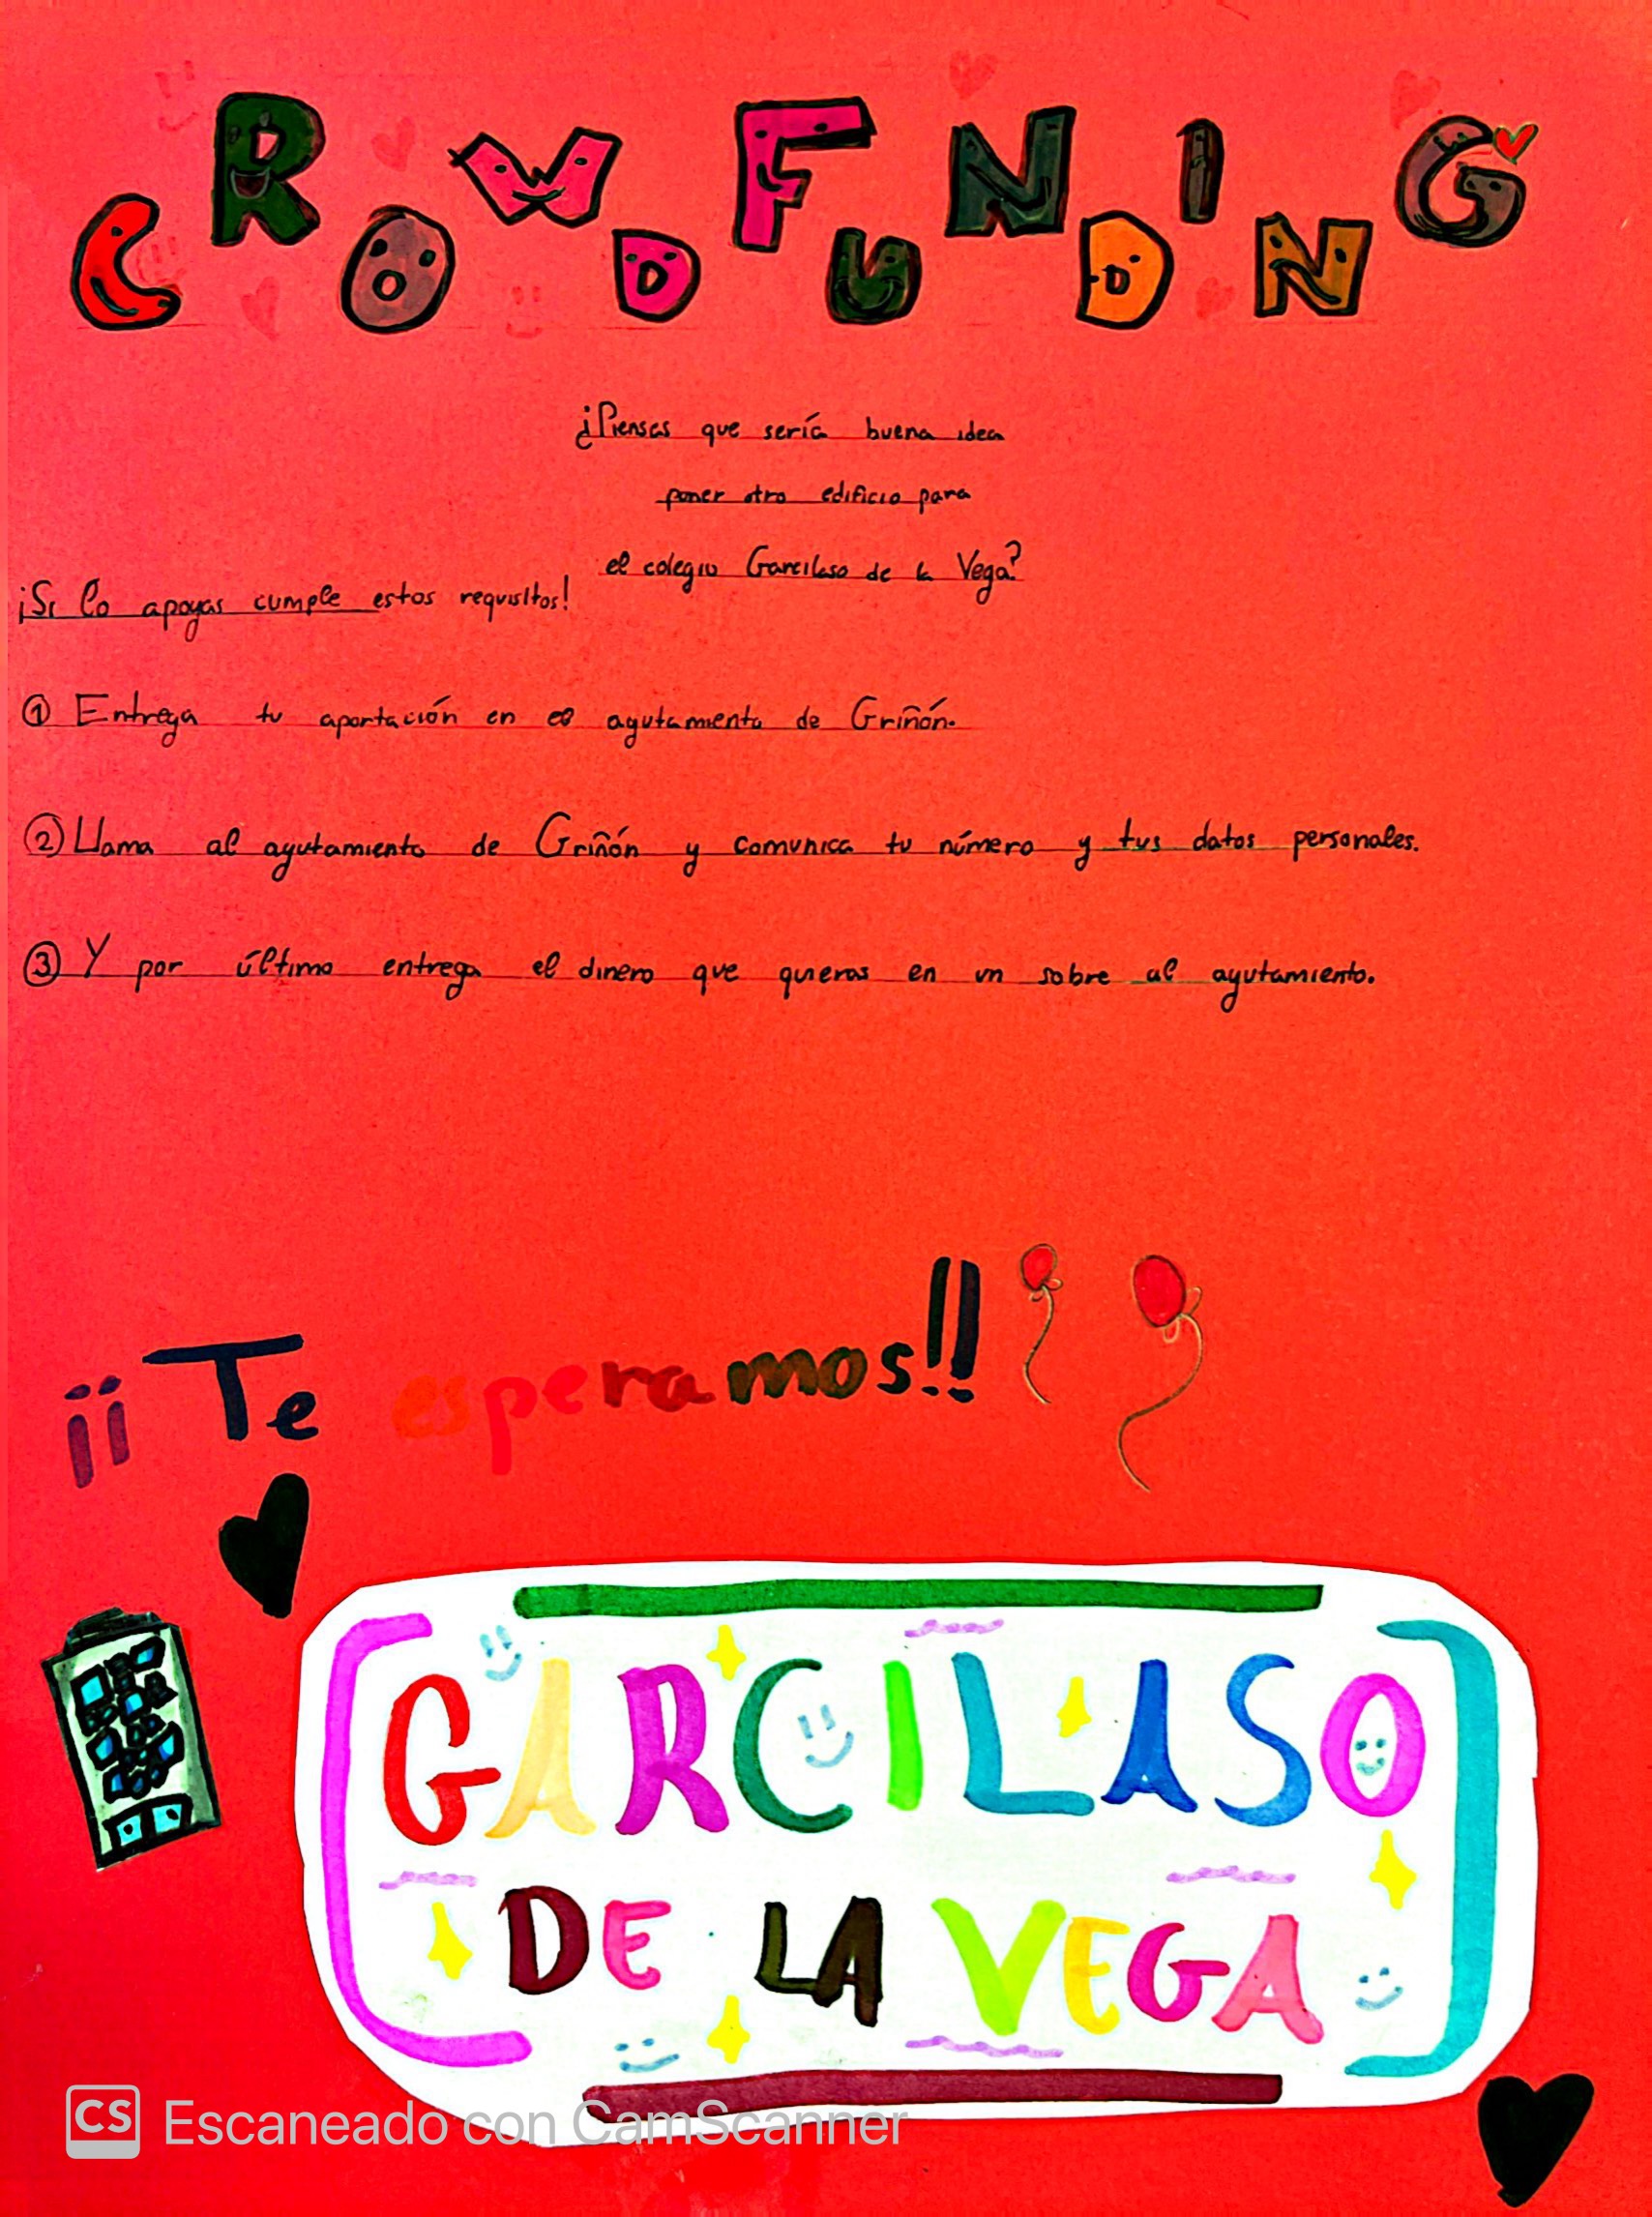 CROWDFUNDING
¿Piensas que sería buena idea
poner otro edificio para
el colegio Garcilaso de la Vega?
¡Si lo apoyas cumple estos requisitos!
① Entrega tu aportación en el ayutamiento de Griñón.
② Llama al ayutamiento de Griñón y comunica tu número y tus datos personales.
③ Y por último entrega el dinero que quieras en un sobre al ayutamiento.
¡¡Te esperamos!!
GARCILASO
DE LA VEGA
CS Escaneado con CamScanner